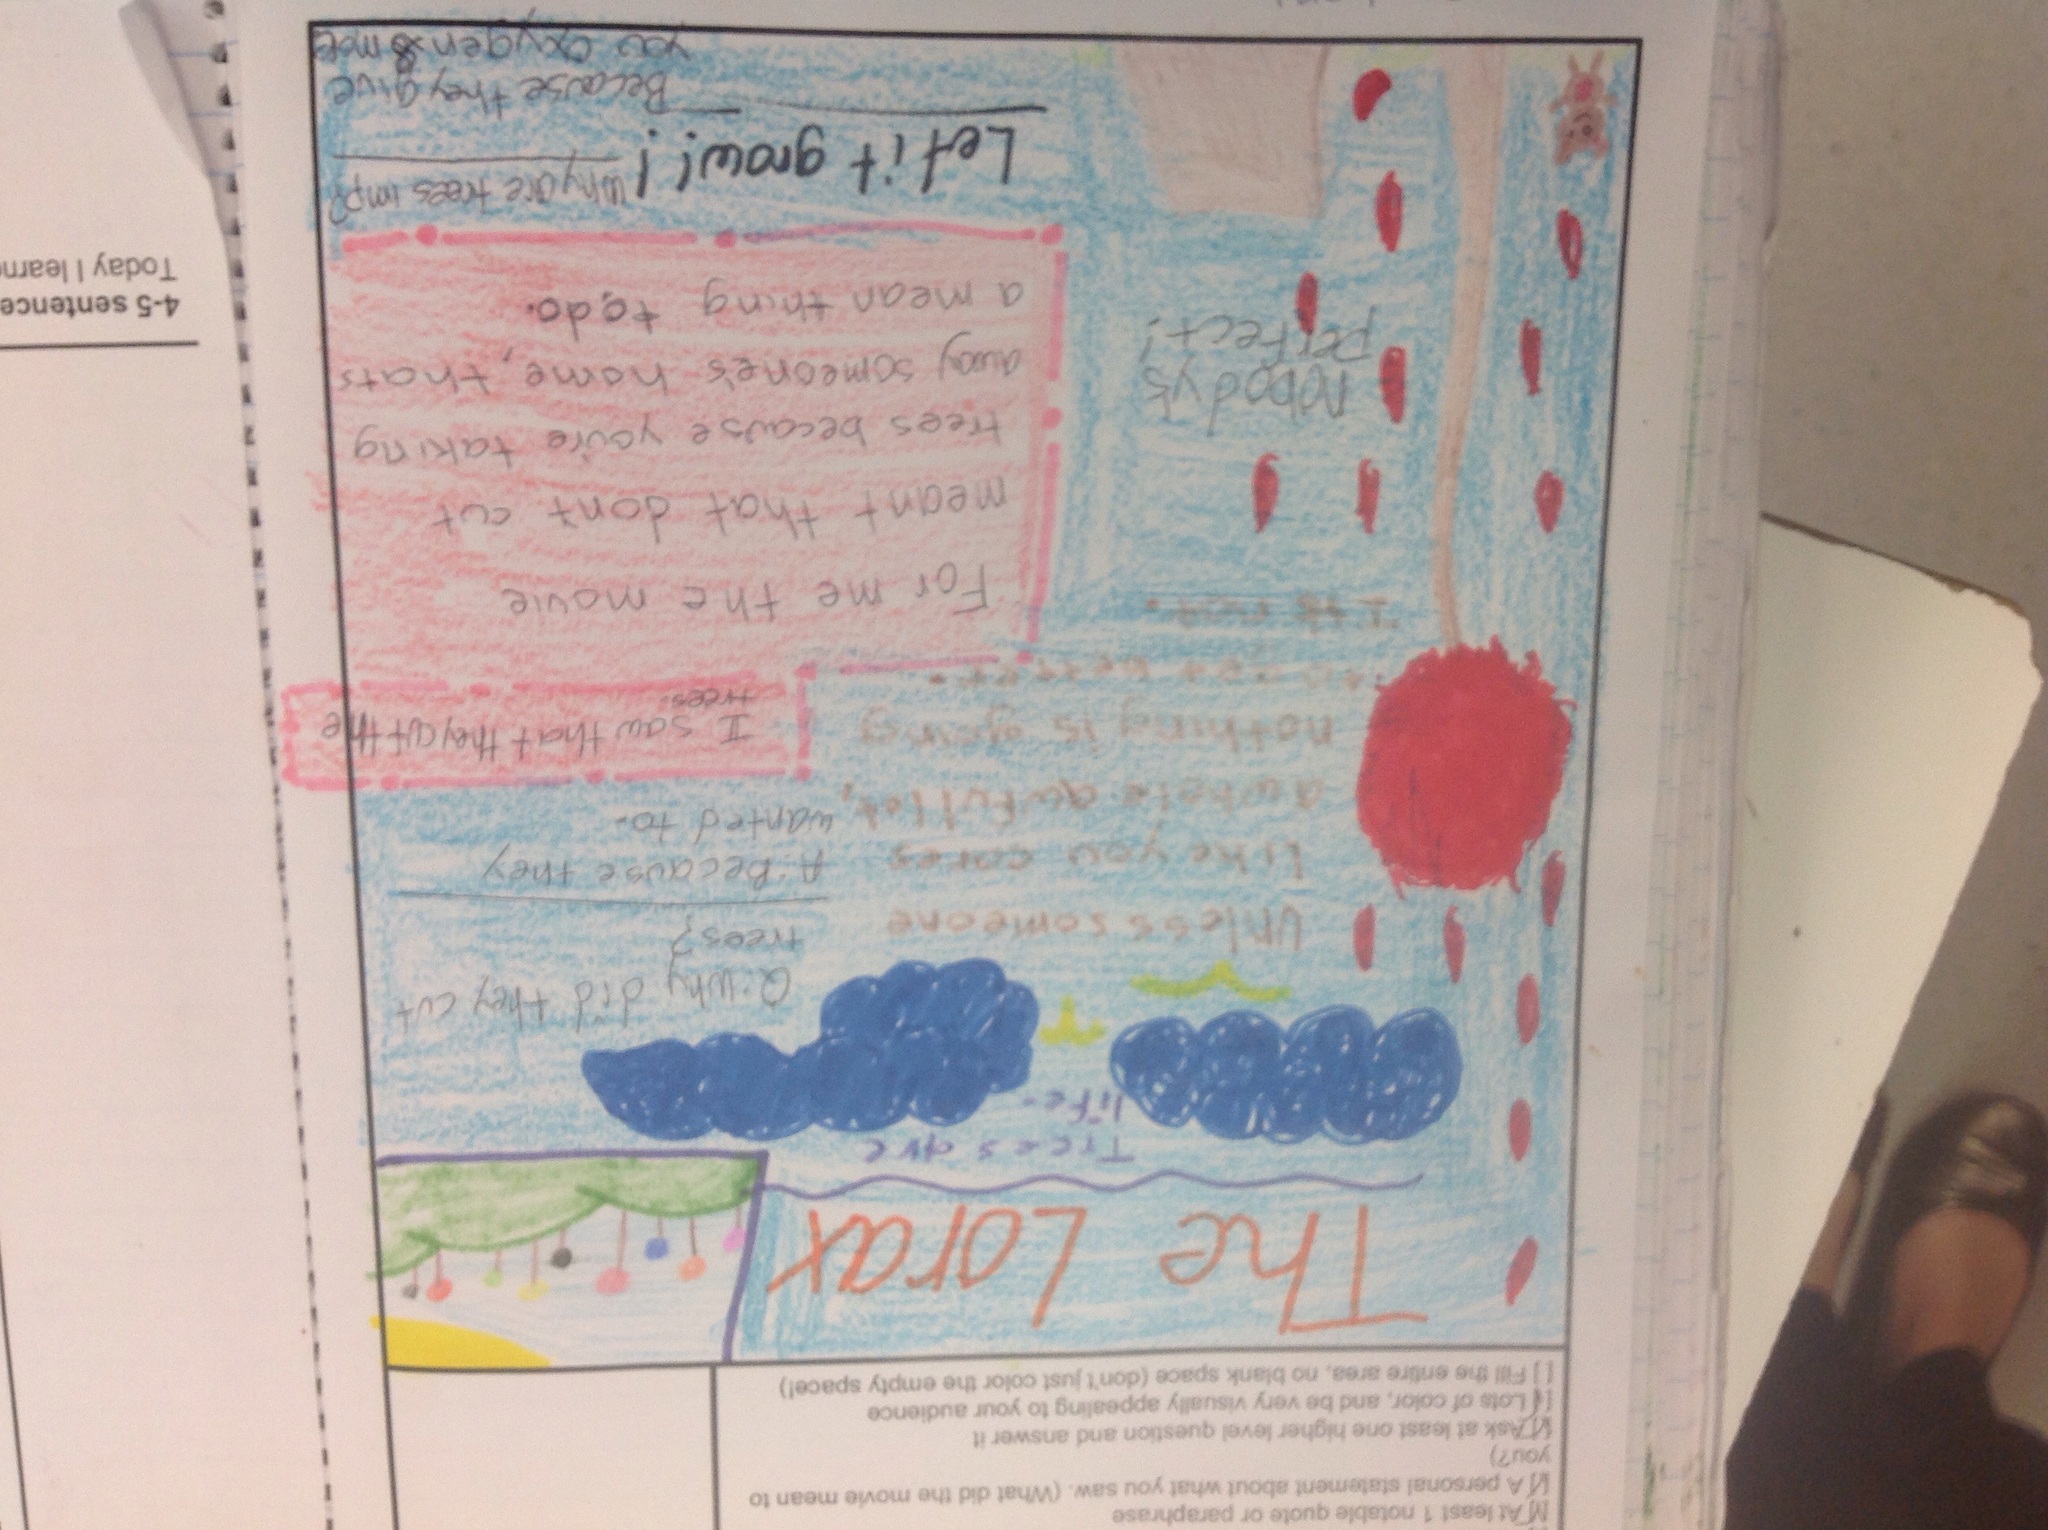 [√] At least 1 notable quote or paraphrase
[√] A personal statement about what you saw. (What did the movie mean to
you?)
[√] Ask at least one higher level question and answer it
[√] Lots of color, and be very visually appealing to your audience
[ ] Fill the entire area, no blank space (don't just color the empty space!)
The Lorax
Trees are
life.
Q: Why did they cut
trees?
A: Because they
wanted to.
Unless someone
like you cares
a whole awful lot,
nothing is going
to get better.
It's not.
I saw that they cut the
trees.
For me the movie
meant that don't cut
trees because you're taking
away someone's home, thats
a mean thing to do.
nobody's
perfect!
Let it grow!!
Why are trees imp?
Because they give
you oxygen & more
4-5 sentence
Today I learne